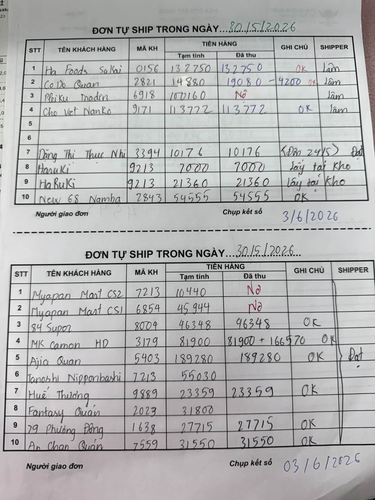 ĐƠN TỰ SHIP TRONG NGÀY...30/5/2026
STT TÊN KHÁCH HÀNG MÃ KH TIỀN HÀNG GHI CHÚ SHIPPER
Tạm tính Đã thu
1 Ha Foods Sakai 0156 132750 132750 OK Lâm
2 Cò Do Quan 2821 14880 19080 -4200 OK Lâm
3 6918 107160 Nợ Lâm
4 Cho Viet Nanko 9171 113772 113772 OK Lâm
5
6
7 Đặng Thị Thuc Nhi 3394 10176 10176 Đạt
8 HaruKi 9213 7000 7000 lấy tại kho
9 HaRuKi 9213 21360 21360 lấy tại Kho
10 New 68 Namba 2843 54555 54555 OK
Người giao đơn Chụp kết số 3/6/2026
ĐƠN TỰ SHIP TRONG NGÀY...30/5/2026...
STT TÊN KHÁCH HÀNG MÃ KH TIỀN HÀNG GHI CHÚ SHIPPER
Tạm tính Đã thu
1 Myapan Mart CS2 7213 10440 Nợ
2 Myapan Mart CS1 6854 45944 Nợ
3 84 Supor 8009 46348 46348 OK
4 MK Camon HD 3179 81900 81900 + 166570 OK
5 Ajia Quan 5403 189280 189280 OK Đạt
6 Tanoshi Nipponbashi 7213 55030
7 Huế Thương 9889 23359 23359 OK
8 Fantasy Quán 2023 31800
9 79 Phương Đông 1638 27715 27715 OK
10 An Chan Quán 7559 31550 31550 OK
Người giao đơn Chụp kết số 03/6/2026